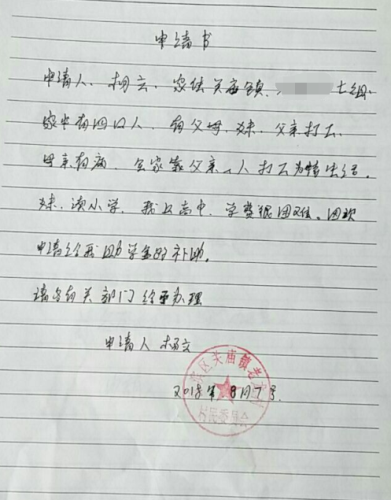 申请书
申请人，杨文，家住关庙镇，七组
家中有四口人，有父母，妹，父亲打工，
母亲有病，全家靠父亲一人打工为持生活。
妹，读小学，我上高中，学费很困难。
申请给我助学金的补助。
请各有关部门给予办理
申请人 杨文
2018年8月7号
区关庙镇